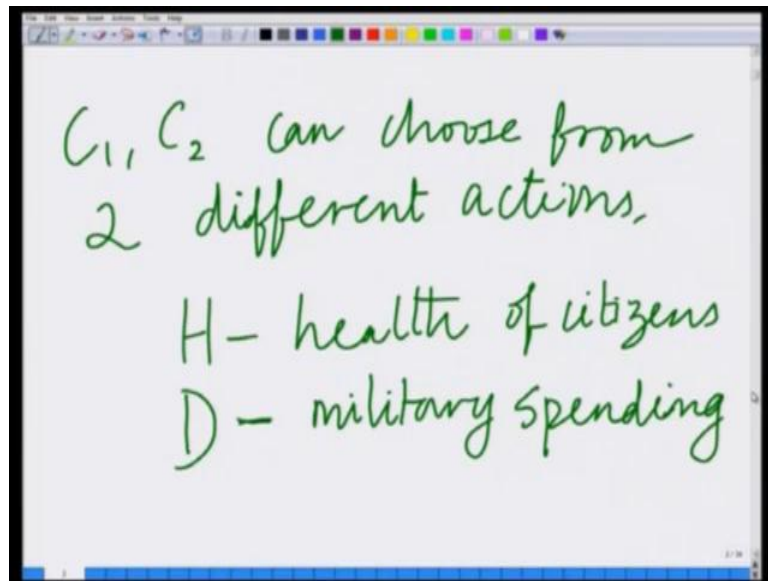 File Edit View Insert Actions Tools Help
C1, C2 can choose from
2 different actions.
H - health of citizens
D - military spending